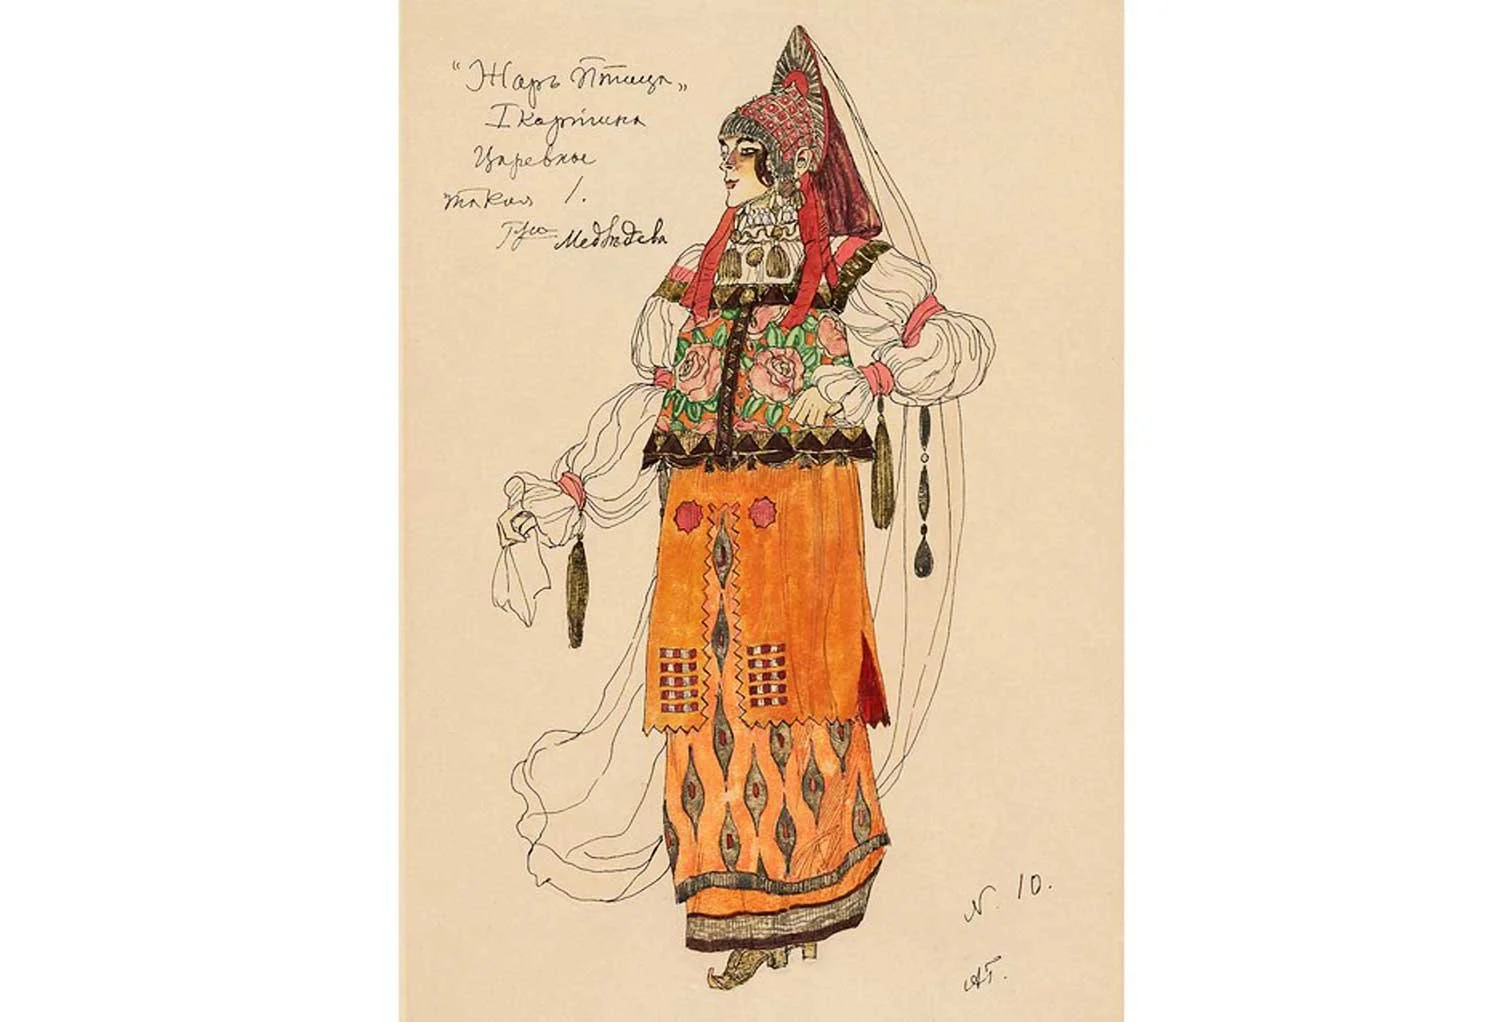 "Жаръ Птица„
I картина
Царевны
такая 1.
Гжа Медвѣдева
N. 10.
АГ.